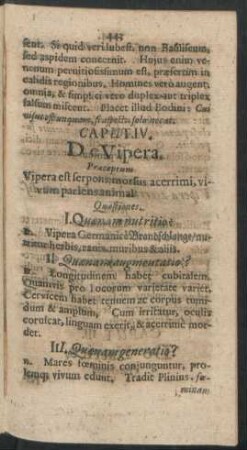 sent. Si quid veri subest, non Basiliscum,
sed aspidem conveniit. Hujus enim ve-
nenum perniciosissimum est, præsertim in
calidis regionibus. Homines verò augent
omnia, & simplici vero duplex aut triplex
falsum miscent. Placet illud Bodini: Cui
visus est unquam, si aspectu solo necat.
CAPUT IV.
De Vipera.
Præceptum
Vipera est serpens morsus acerrimi, vi-
vum pariens animal.
Quæstiones.
I. Quænam nutritio?
R. Vipera Germanicè Brandschlange/nu-
tritur herbis, ranis, muribus & aliis.
II. Quænam augmentatio?
R. Longitudinem habet cubitalem.
Quamvis pro locorum varietate variet.
Cervicem habet tenuem ac corpus tumi-
dum & amplum. Cum irritatur, oculis
coruscat, linguam exerit, & acerrimè mor-
det.
III. Quænam generatio?
R. Mares fœminis conjunguntur, pro-
lemq; vivum edunt. Tradit Plinius, fœ-
minam